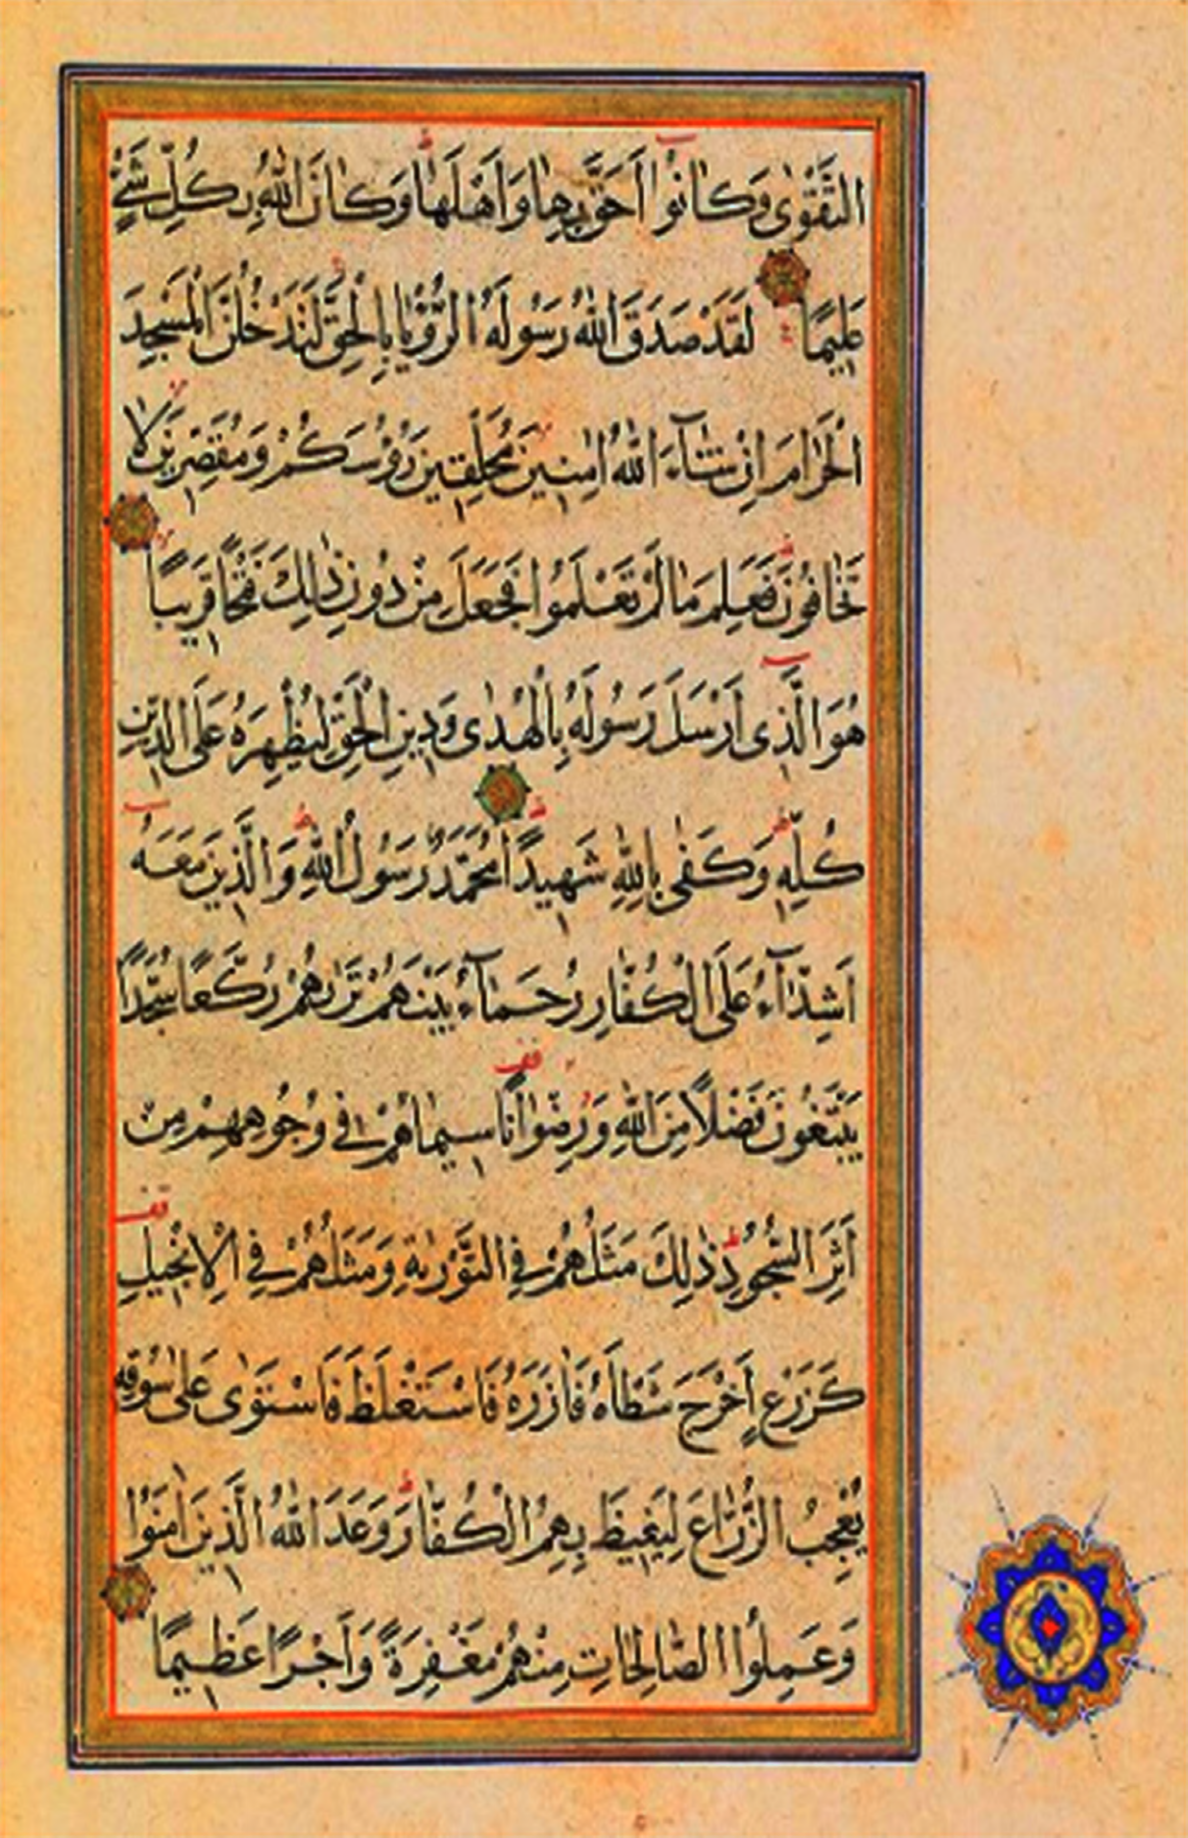 التَّقْوٰى وَكَانُوا اَحَقَّ بِهَا وَاَهْلَهَا وَكَانَ اللّٰهُ بِكُلِّ شَيْءٍ
عَلِيمًا لَقَدْ صَدَقَ اللّٰهُ رَسُولَهُ الرُّؤْيَا بِالْحَقِّ لَتَدْخُلُنَّ الْمَسْجِدَ
الْحَرَامَ اِنْ شَاۤءَ اللّٰهُ اٰمِنِينَ مُحَلِّقِينَ رُؤُسَكُمْ وَمُقَصِّرِينَ لَا
تَخَافُونَ فَعَلِمَ مَا لَمْ تَعْلَمُوا فَجَعَلَ مِنْ دُونِ ذٰلِكَ فَتْحًا قَرِيبًا
هُوَ الَّذِى اَرْسَلَ رَسُولَهُ بِالْهُدٰى وَدِينِ الْحَقِّ لِيُظْهِرَهُ عَلَى الدِّينِ
كُلِّهِ وَكَفٰى بِاللّٰهِ شَهِيدًا مُحَمَّدٌ رَسُولُ اللّٰهِ وَالَّذِينَ مَعَهُ
اَشِدَّاۤءُ عَلَى الْكُفَّارِ رُحَمَاۤءُ بَيْنَهُمْ تَرٰيهُمْ رُكَّعًا سُجَّدًا
يَبْتَغُونَ فَضْلًا مِنَ اللّٰهِ وَرِضْوَانًا سِيمَاهُمْ فِى وُجُوهِهِمْ مِنْ
اَثَرِ السُّجُودِ ذٰلِكَ مَثَلُهُمْ فِى التَّوْرٰيةِ وَمَثَلُهُمْ فِى الْاِنْجِيلِ
كَزَرْعٍ اَخْرَجَ شَطْأَهُ فَاٰزَرَهُ فَاسْتَغْلَظَ فَاسْتَوٰى عَلٰى سُوقِهِ
يُعْجِبُ الزُّرَّاعَ لِيَغِيظَ بِهِمُ الْكُفَّارَ وَعَدَ اللّٰهُ الَّذِينَ اٰمَنُوا
وَعَمِلُوا الصَّالِحَاتِ مِنْهُمْ مَغْفِرَةً وَاَجْرًا عَظِيمًا